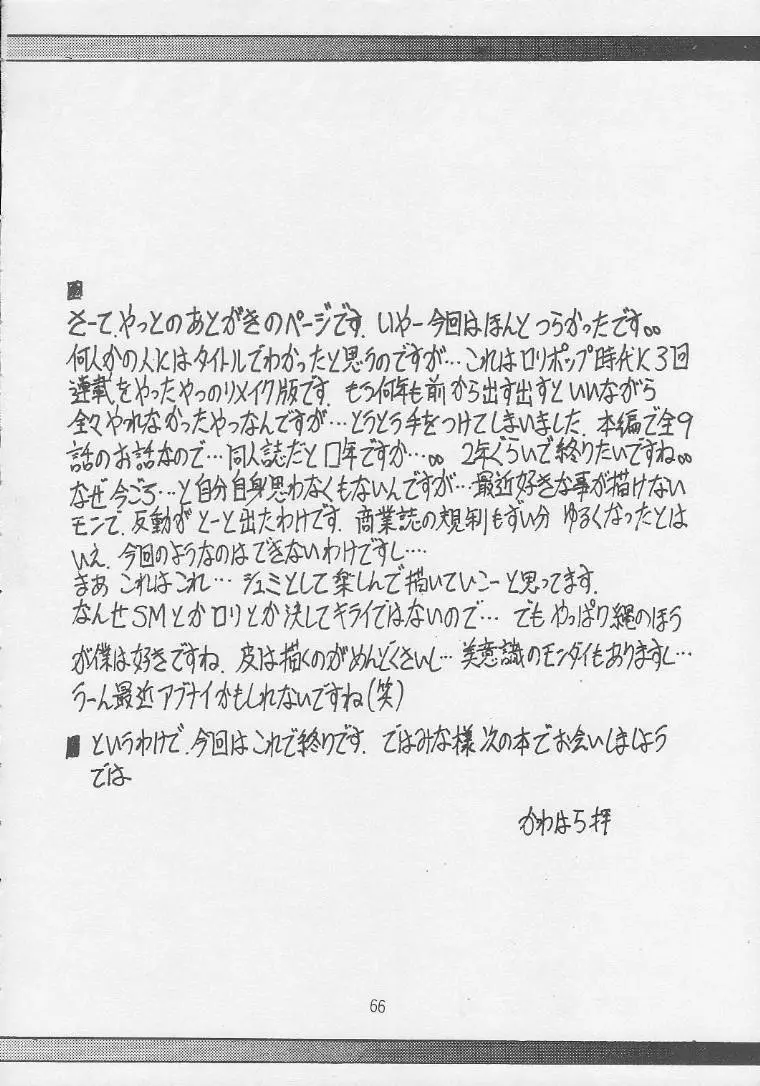 さーて、やっとのあとがきのページです。いやー今回はほんとつらかったです。。
何人かの人にはタイトルでわかったと思うのですが…これはロリポップ時代に3回
連載をやったやつのリメイク版です。もう何年も前から出す出すといいながら
全々やれなかったやつなんですが…とうとう手をつけてしまいました。本編で全9
話のお話なので…同人誌だと 年ですか…。。2年ぐらいで終りたいですね。。
なぜ今ごろ…と自分自身思わなくもないんですが…最近好きな事が描けない
モンで、反動がどーと出たわけです。商業誌の規制もずい分ゆるくなったとは
いえ、今回のようなのはできないわけですし…
まあこれはこれ…シュミとして楽しんで描いていこーと思ってます。
なんせSMとかロリとか決してキライではないので…でもやっぱり縄のほう
が僕は好きですね、皮は描くのがめんどくさいし…美意識のモンダイもありますし…
うーん最近アブナイかもしれないですね(笑)
というわけで、今回はこれで終りです。ではみな様次の本でお会いしましょう
では
かわはら拝
66